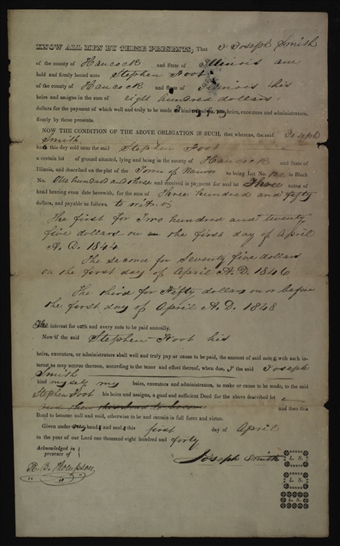 KNOW ALL MEN BY THESE PRESENTS, That I Joseph Smith
of the county of Hancock and State of Illinois am
held and firmly bound unto Stephen Foot
of the county of Hancock and State of Illinois his
heirs and assigns in the sum of eight hundred dollars
dollars for the payment of which well and truly to be made I bind my self, my heirs, executors and administrators,
firmly by these presents.
NOW THE CONDITION OF THE ABOVE OBLIGATION IS SUCH, that whereas, the said Joseph
Smith, hath this day sold unto the said Stephen Foot
a certain lot of ground situated, lying and being in the county of Hancock and State of
Illinois, and described on the plot of the Town of Nauvoo as being Lot No. in Block
No. One hundred and three and received in payment for said lot Three notes of
hand bearing even date herewith, for the sum of Three hundred and fifty
dollars, and payable as follows to wit:
The first for Two hundred and twenty
five dollars on the first day of April
A.D. 1844
The second for Seventy five dollars
on the first day of April A.D. 1846
The third for Fifty dollars on or before
the first day of April A.D. 1848
The interest for each and every note to be paid annually.
Now if the said Stephen Foot his
heirs, executors, or administrators shall well and truly pay or cause to be paid, the amount of said notes with each interest as may accrue thereon, according to the tenor and effect thereof, when due, I the said Joseph
Smith
bind my self my heirs, executors, or administrators, to make or cause to be made, to the said
Stephen Foot his heirs and assigns, a good and sufficient Deed for the above described lot
and then this
Bond to become null and void, otherwise to be and remain in full force and virtue.
Given under my hand and seal this first day of April
in the year of our Lord one thousand eight hundred and forty
Acknowledged in
presence of
R. B. Thompson
Joseph Smith
L. S.
L. S.